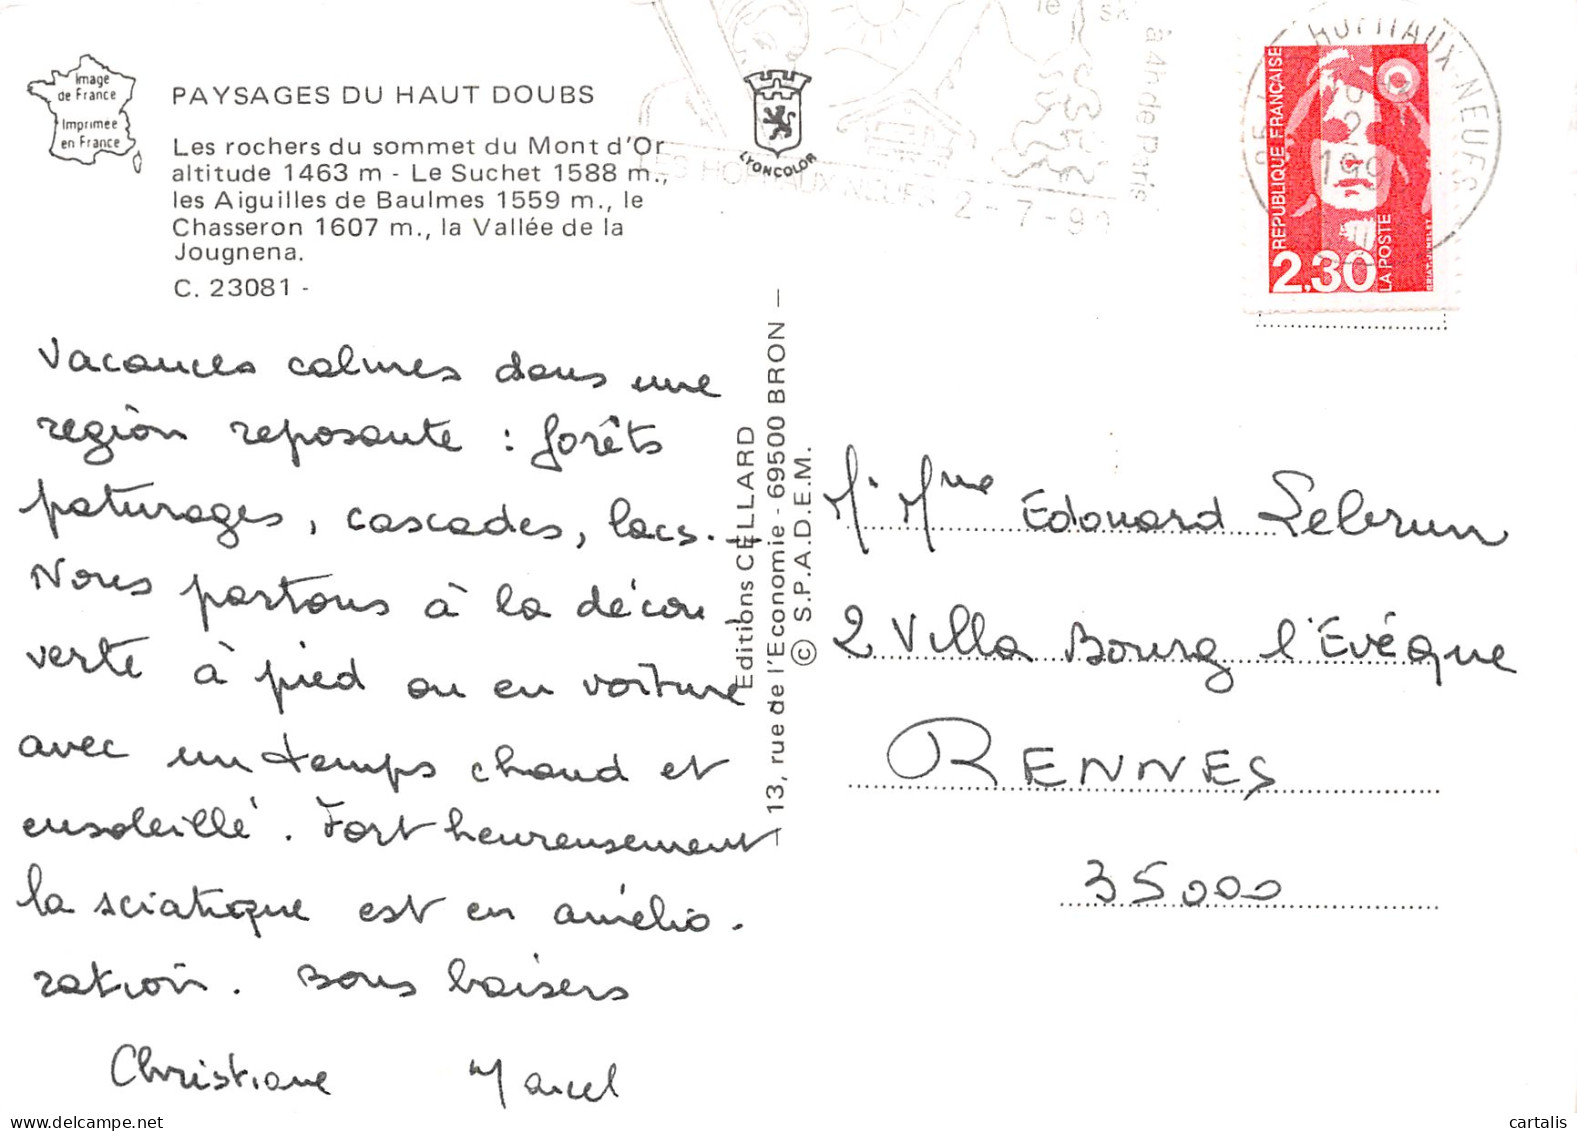 Image
de France
Imprimée
en France
PAYSAGES DU HAUT DOUBS
Les rochers du sommet du Mont d'Or
altitude 1463 m - Le Suchet 1588 m.,
les Aiguilles de Baulmes 1559 m., le
Chasseron 1607 m., la Vallée de la
Jougnena.
C. 23081 -
LYONCOLOR
le sk
à 4h de Paris
LES HOPITAUX NEUFS 2-7-9
HOPITAUX-NEUFS
2
REPUBLIQUE FRANÇAISE
2,30
LA POSTE
Vacances calmes dans une
region reposante : forêts
paturages, cascades, lacs.
Nous partons à la décou-
verte à pied ou en voiture
avec un temps chaud et
ensoleillé. Fort heureusement
la sciatique est en amélio-
ration. Bons baisers
Christiane Marcel
Editions CELLARD
— 13, rue de l'Economie - 69500 BRON —
© S.P.A.D.E.M.
M. Mme Edouard Lebrun
2 Villa Bourg l'Evéque
RENNES
35000
delcampe.net
cartalis